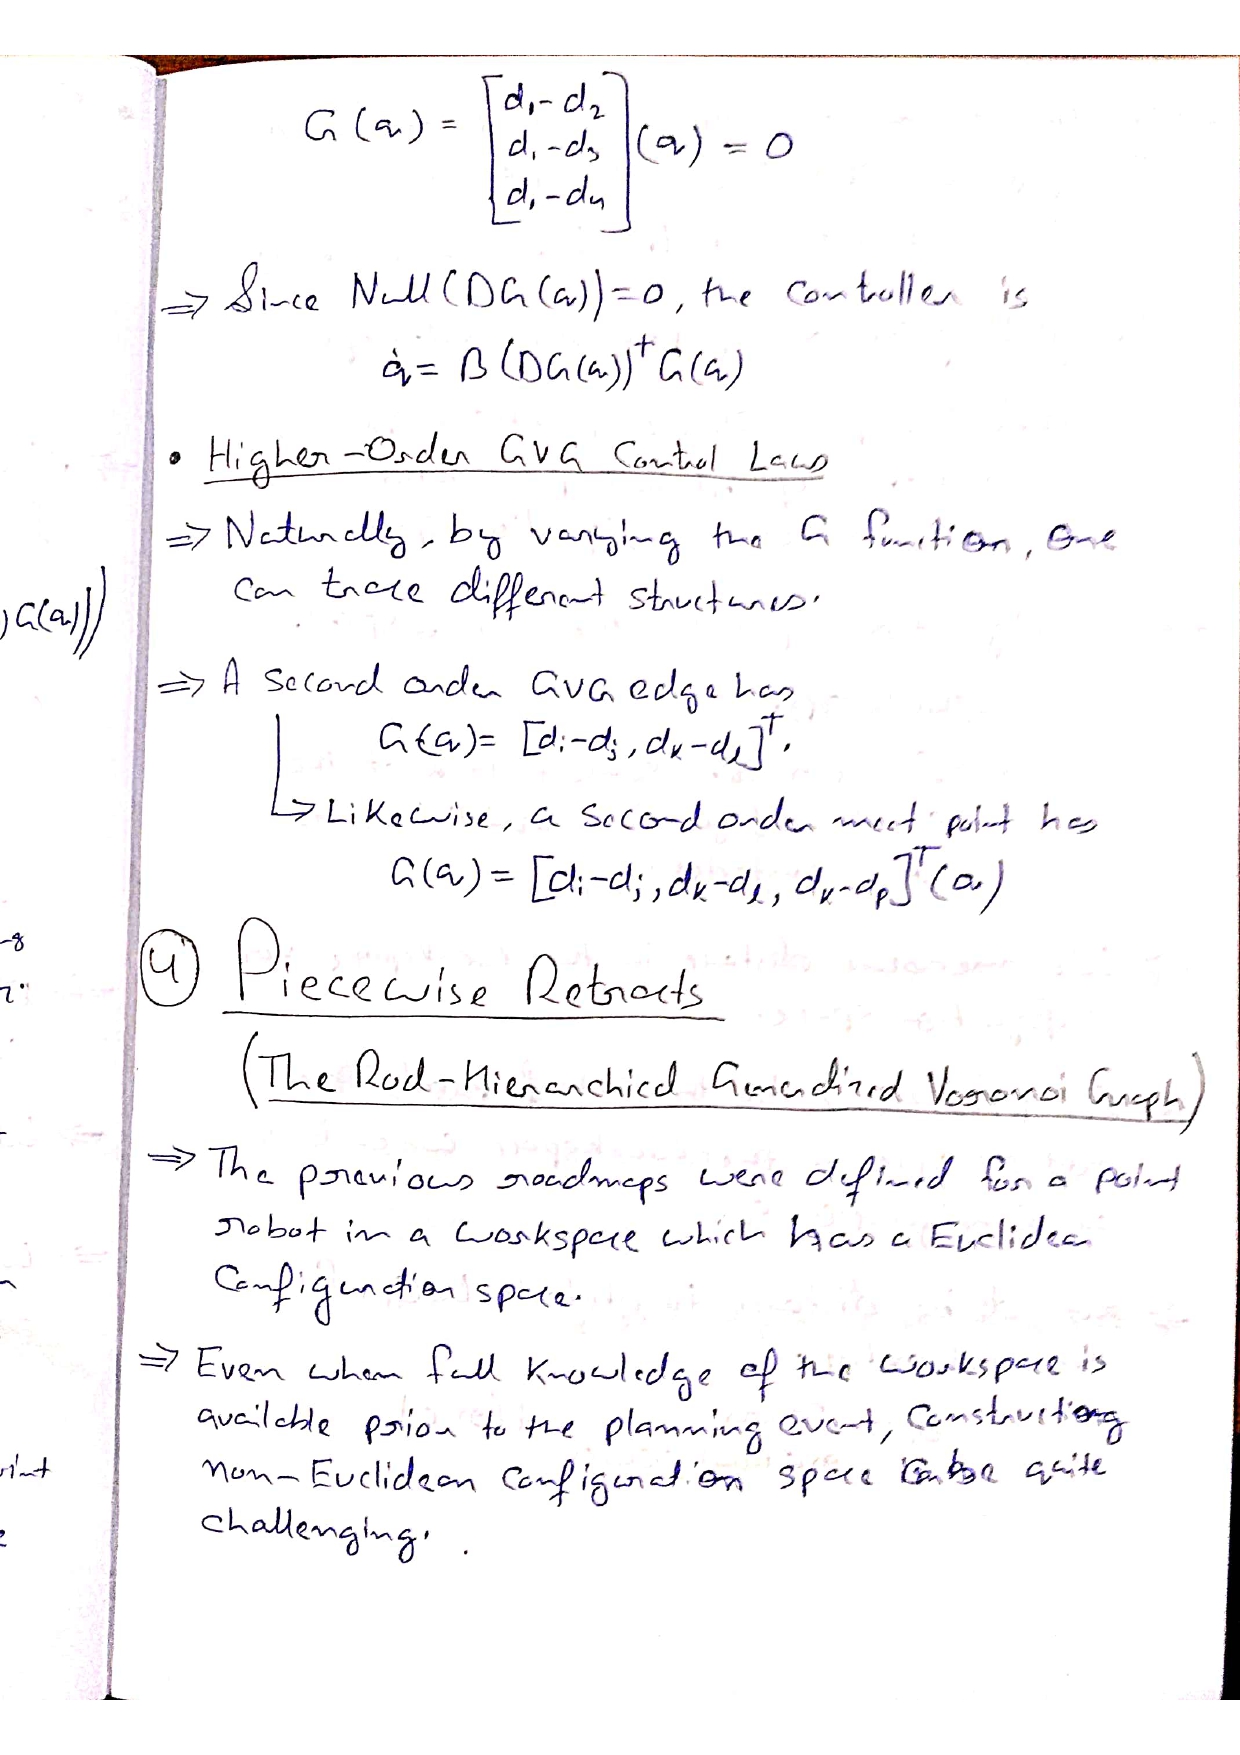 G(q) = [d₁-d₂
d₁-d₃
d₁-d₄] (q) = 0
⇒ Since Null(DG(q))=0, the controller is
q̇ = β(DG(q))†G(q)
• Higher-Order GVG Control Laws
⇒ Naturally, by varying the G function, one
can trace different structures.
, G(q)))
⇒ A second order GVG edge has
G(q) = [dᵢ-dⱼ, dₖ-dₗ]ᵀ.
↳ Likewise, a second order meet point has
G(q) = [dᵢ-dⱼ, dₖ-dₗ, dₖ-dₚ]ᵀ(q)
④ Piecewise Retracts
(The Rod-Hierarchical Generalized Voronoi Graph)
⇒ The previous roadmaps were defined for a point
robot in a workspace which has a Euclidean
configuration space.
⇒ Even when full knowledge of the workspace is
available prior to the planning event, constructiong
non-Euclidean configuration space can be quite
challenging.